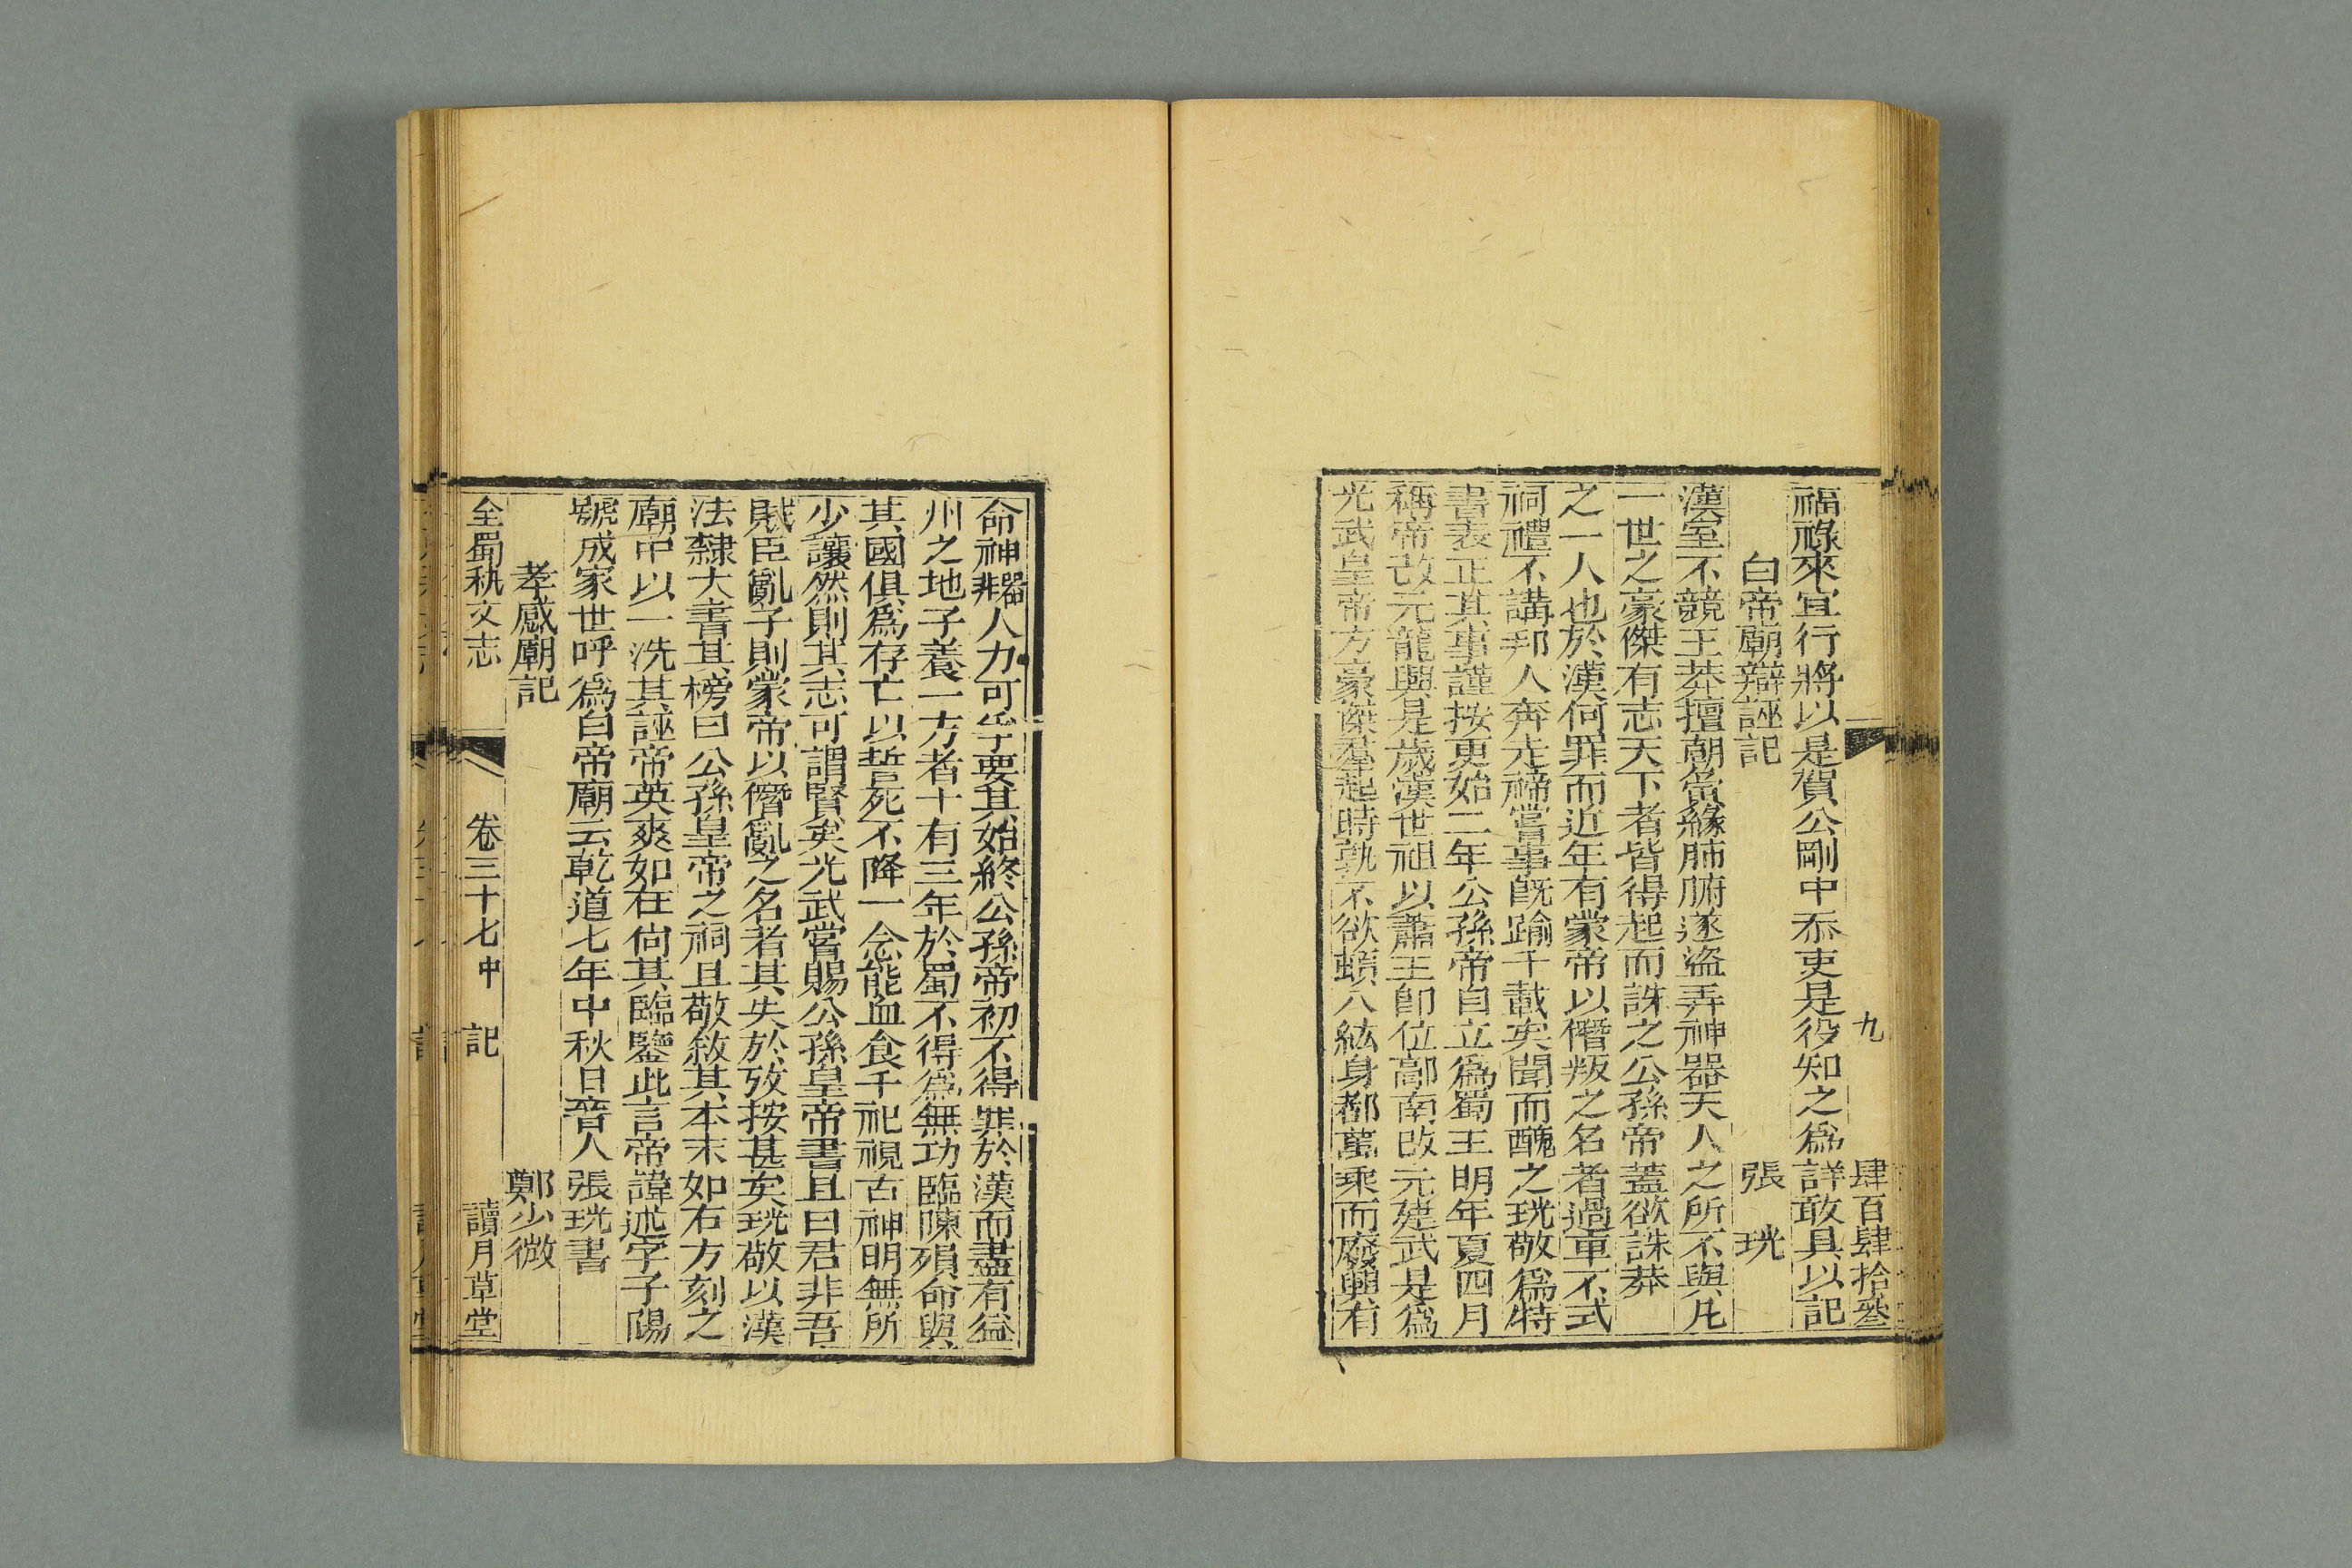 九 肆百肆拾叁
福祿來宜行將以是賀公剛中忝吏是役知之爲詳敢具以記
白帝廟辯誣記 張珖
漢室不競王莽擅朝夤緣肺腑遂盜弄神器天人之所不與凡
一世之豪傑有志天下者皆得起而誅之公孫帝蓋欲誅莽
之一人也於漢何罪而近年有蒙帝以僭叛之名者過車不式
祠禮不講邦人奔走禘嘗事既踰千載矣聞而醜之珖敬爲特
書表正其事謹按更始二年公孫帝自立爲蜀王明年夏四月
稱帝改元龍興是歲漢世祖以蕭王卽位鄗南改元建武是爲
光武皇帝方豪傑羣起時孰不欲頓八紘身都萬乘而廢興有
命神器非人力可乎要其始終公孫帝初不得罪於漢而盡有益
州之地子養一方者十有三年於蜀不得爲無功臨陳殞命與
其國俱爲存亡以誓死不降一念能血食千祀視古神明無所
少讓然則其志可謂賢矣光武嘗賜公孫皇帝書且曰君非吾
賊臣亂子則蒙帝以僭亂之名者其失於攷按甚矣珖敬以漢
法隸大書其榜曰公孫皇帝之祠且敬敘其本末如右方刻之
廟中以一洗其誣帝英爽如在尙其臨鑒此言帝諱述字子陽
號成家世呼爲白帝廟云乾道七年中秋日晉人張珖書
孝感廟記 鄭少微
全蜀秇文志 卷三十七中 記 讀月草堂